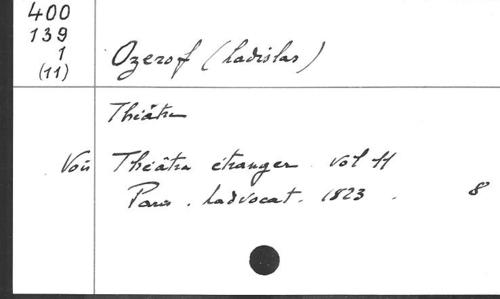 400
139
1
(11)
Ozerof (Ladislas)
Théâtre
Voir Théâtre étranger. vol 11
Paris. Ladvocat. 1823. 8